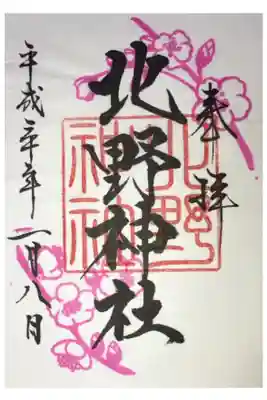 奉拝
北野神社
北野
神社
平成三十年二月八日